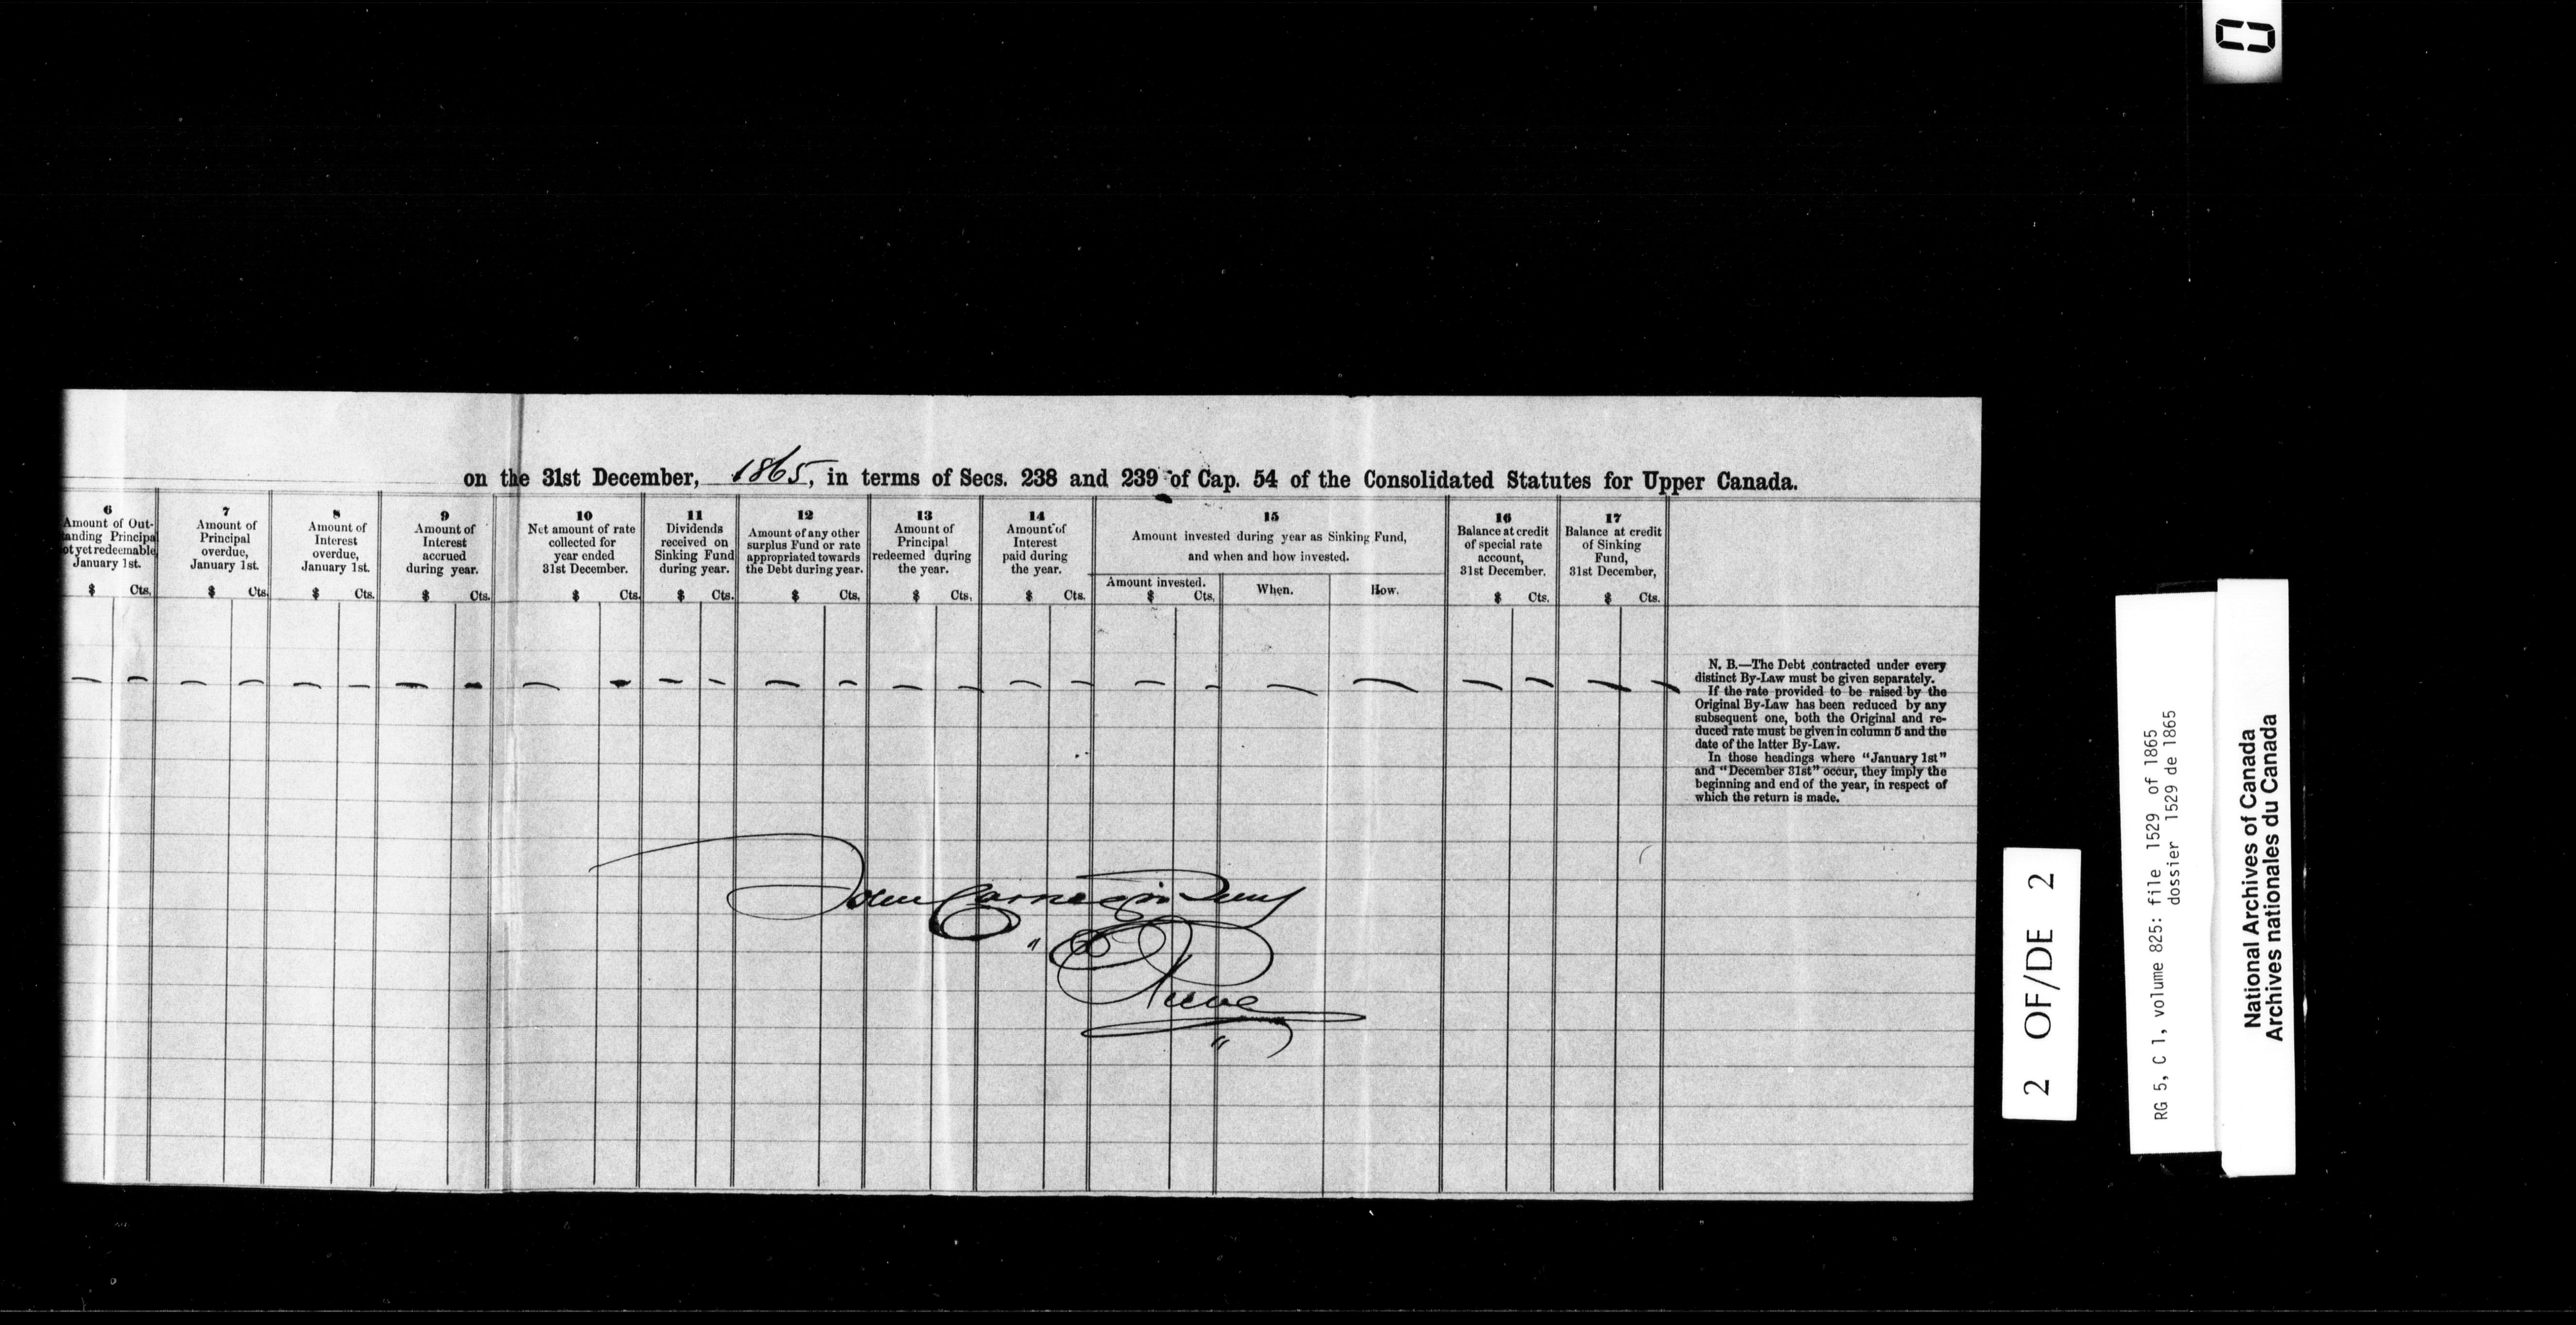 on the 31st December, 1865, in terms of Secs. 238 and 239 of Cap. 54 of the Consolidated Statutes for Upper Canada.
6
Amount of Out-
anding Principa
ot yet redeemable
January 1st.
$ Cts.
7
Amount of
Principal
overdue,
January 1st.
$ Cts.
8
Amount of
Interest
overdue,
January 1st.
$ Cts.
9
Amount of
Interest
accrued
during year.
$ Cts.
10
Net amount of rate
collected for
year ended
31st December.
$ Cts.
11
Dividends
received on
Sinking Fund
during year.
$ Cts.
12
Amount of any other
surplus Fund or rate
appropriated towards
the Debt during year.
$ Cts.
13
Amount of
Principal
redeemed during
the year.
$ Cts.
14
Amount of
Interest
paid during
the year.
$ Cts.
15
Amount invested during year as Sinking Fund,
and when and how invested.
Amount invested.
$ Cts.
When.
How.
16
Balance at credit
of special rate
account,
31st December.
$ Cts.
17
Balance at credit
of Sinking
Fund,
31st December,
$ Cts.
— — — — — — — — — — — — — — — — — — — — — — — — — —
N. B.—The Debt contracted under every
distinct By-Law must be given separately.
If the rate provided to be raised by the
Original By-Law has been reduced by any
subsequent one, both the Original and re-
duced rate must be given in column 5 and the
date of the latter By-Law.
In those headings where "January 1st"
and "December 31st" occur, they imply the
beginning and end of the year, in respect of
which the return is made.
John Carnegie
Reeve
2 OF/DE 2
RG 5, C 1, volume 825: file 1529 of 1865
dossier 1529 de 1865
National Archives of Canada
Archives nationales du Canada